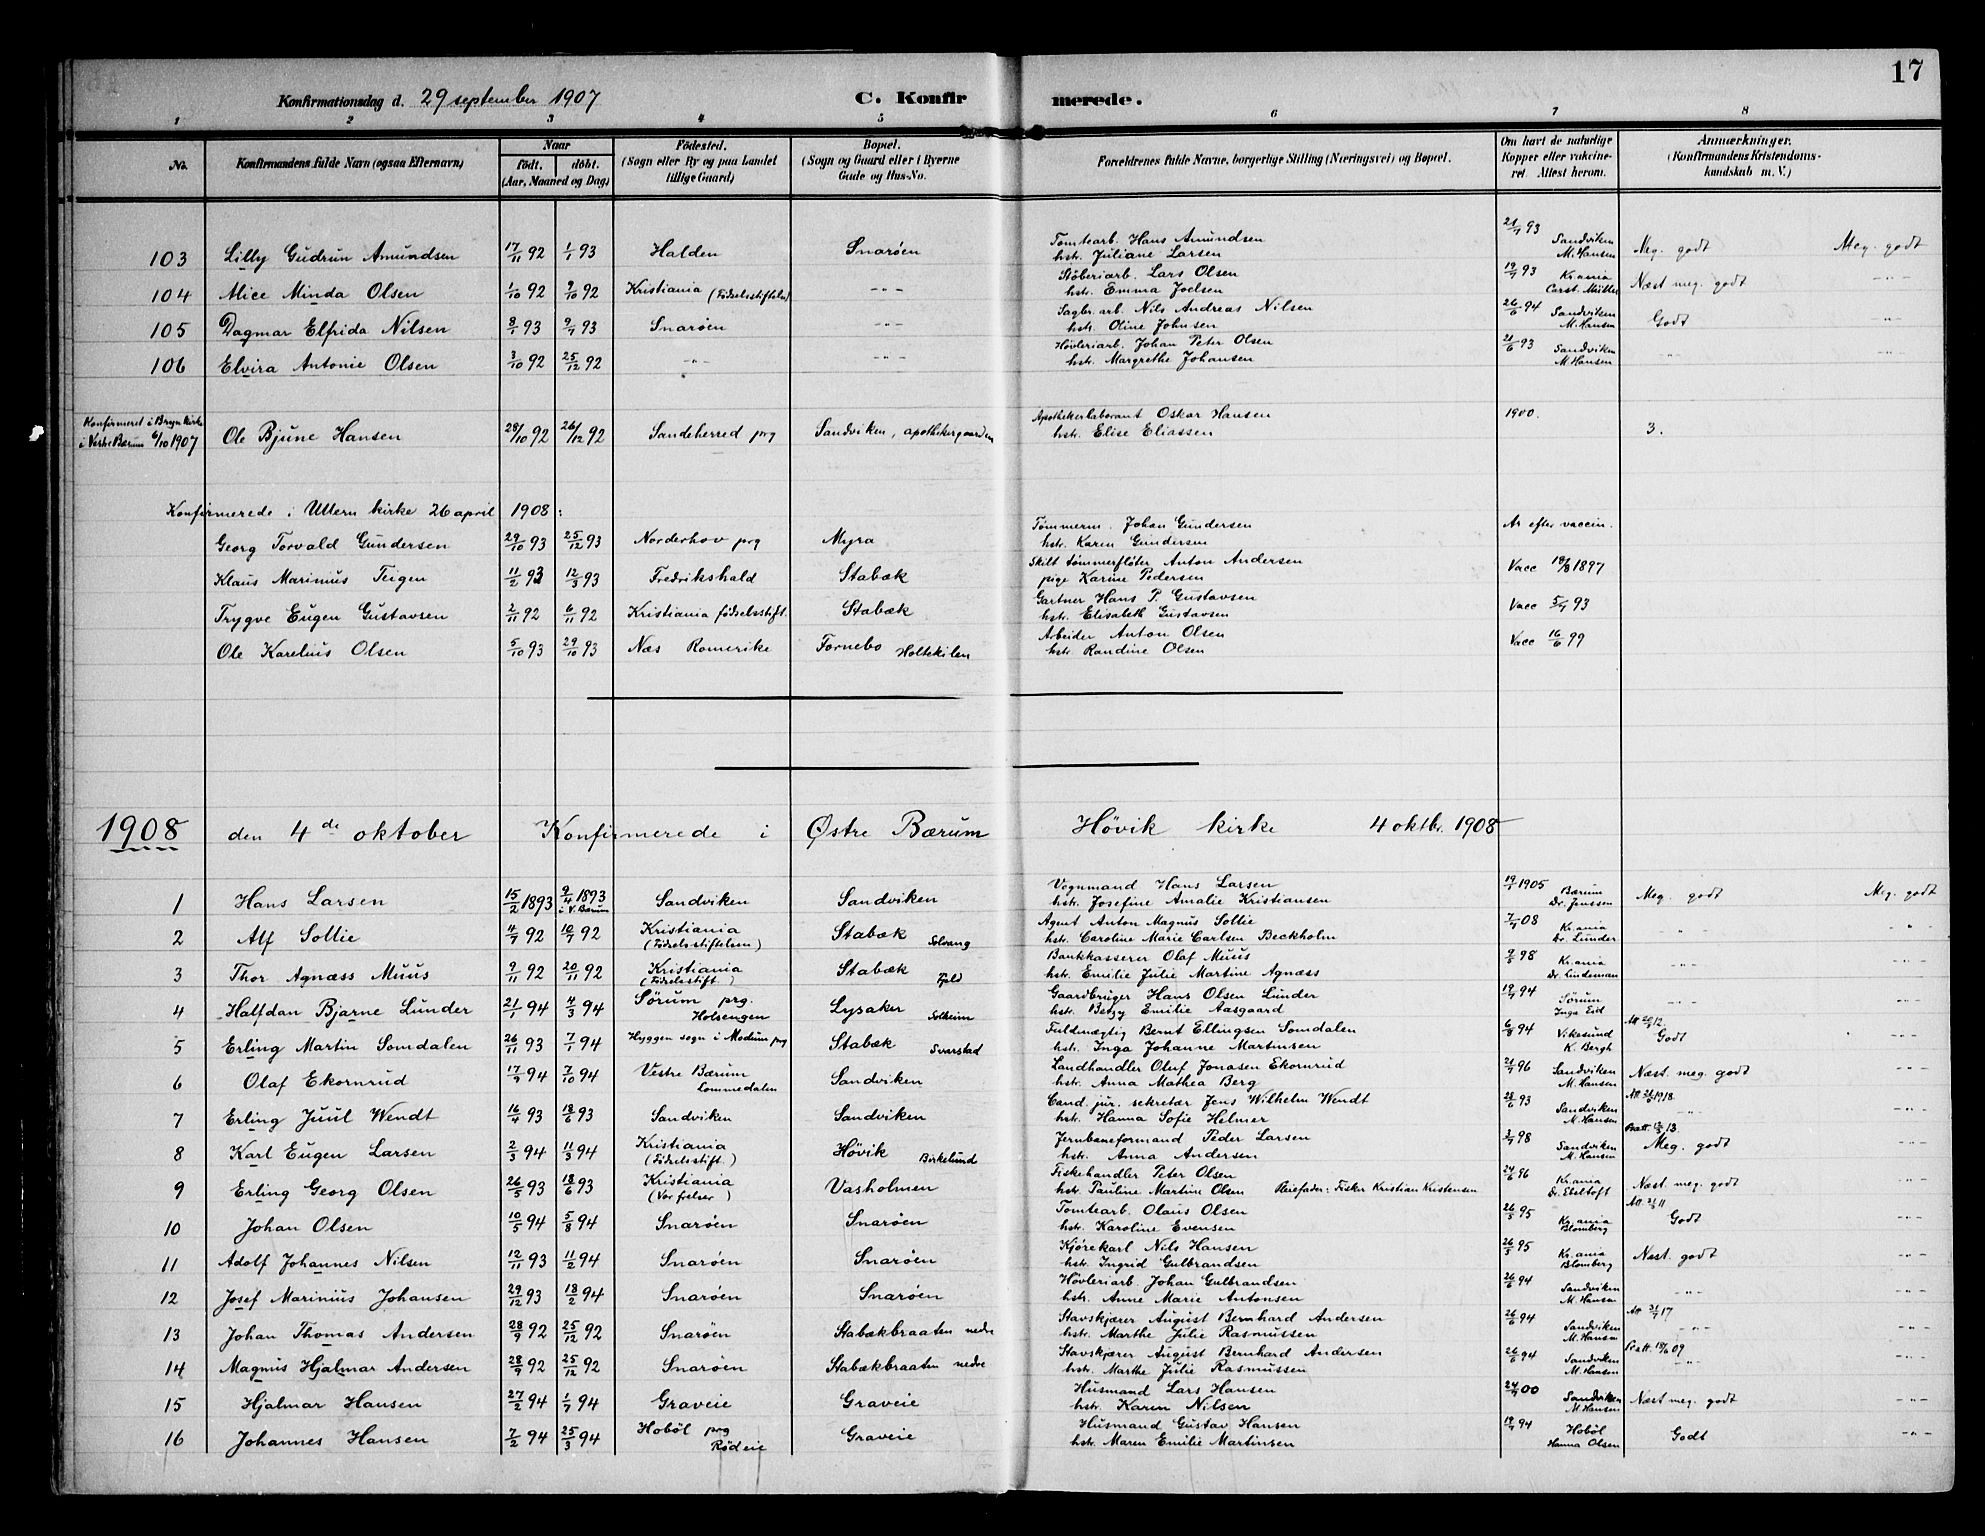 17
Konfirmationsdag d. 29 september 1907 C. Konfirmerede.
1 2 3 4 5 6 7 8
No. Konfirmandens fulde Navn (ogsaa Efternavn) Naar født. døbt. (Aar, Maaned og Dag) Fødested. (Sogn eller By og paa Landet tillige Gaard) Bopæl. (Sogn og Gaard eller i Byerne Gade og Hus-No. Forældrenes fulde Navne, borgerlige Stilling (Næringsvei) og Bopæl. Om havt de naturlige Kopper eller vakcineret. Attest herom. Anmærkninger. (Konfirmandens Kristendomskundskab m. V.)
103 Lilly Gudrun Amundsen 17/11 92 1/1 93 Halden Snarøen Tomtearb. Hans Amundsen hstr. Juliane Larsen 21/7 93 Sandviken M. Hansen Meg. godt Meg. godt
104 Alice Minda Olsen 1/10 92 9/10 92 Kristiania (Fødselsstiftelsen) -"- Støberiarb. Lars Olsen hstr. Emma Joelsen 19/7 93 Kr.ania Carst. Müller Næst meg. godt -"-
105 Dagmar Elfrida Nilsen 8/1 93 9/7 93 Snarøen -"- Sagbr. arb. Nils Andreas Nilsen hstr. Oline Johnsen 26/6 94 Sandviken M. Hansen Godt "
106 Elvira Antonie Olsen 3/10 92 25/12 92 -"- -"- Høvleriarb. Johan Peter Olsen hstr. Margrethe Johansen 21/6 93 Sandviken M. Hansen -"- -"-
Konfirmeret i Bryn kirke i Vestre Bærum 6/10 1907 Ole Bjune Hansen 28/10 92 26/12 92 Sandeherred prg Sandviken, apothekergaarden Apothekerlaborant Oskar Hansen hstr. Elise Eliassen 1900. 3.
Konfirmerede i Ullern kirke 26 april 1908:
Georg Torvald Gundersen 29/10 93 25/12 93 Norderhov prg Myra Tømmerm. Johan Gundersen hstr. Karen Gundersen Ar efter vaccin.
Klaus Marinius Teigen 11/2 93 12/3 93 Fredrikshald Stabæk Skilt tømmerfløter Anton Andersen pige Karine Pedersen Vacc 19/8 1897
Trygve Eugen Gustavsen 2/11 92 6/11 92 Kristiania fødselsstift. Stabæk Gartner Hans P. Gustavsen hstr. Elisabeth Gustavsen Vacc 5/9 93
Ole Karelius Olsen 5/10 93 29/10 93 Næs Romerike Fornebo Holtekilen Arbeider Anton Olsen hstr. Randine Olsen Vacc 16/6 99
1908 den 4de oktober Konfirmerede i Østre Bærum Høvik kirke 4 oktbr. 1908
1 Hans Larsen 15/2 1893 9/4 1893 i V. Bærum Sandviken Sandviken Vognmand Hans Larsen hstr. Josefine Amalie Kristiansen 19/1 1905 Bærum Dr. Jenssen Meg. godt Meg. godt
2 Alf Sollie 4/7 92 10/7 92 Kristiania (Fødselsstiftelsen) Stabæk Solvang Agent Anton Magnus Sollie hstr. Caroline Marie Carlsen Beckholm 7/7 08 Kr.ania Dr. Lunder -"- -"-
3 Thor Agnæss Muus 9/11 92 20/11 92 Kristiania (Fødselsstift.) Stabæk Fjeld Bankkasserer Olaf Muus hstr. Emilie Julie Martine Agnæss 9/6 98 Kr.ania Dr. Lindeman -"- -"-
4 Halfdan Bjarne Lunder 21/1 94 4/3 94 Sørum prg. Holsengen Lysaker Solheim Gaardbruger Hans Olsen Lunder hstr. Betzy Emilie Aasgaard 19/9 94 Sørum Inga Eid -"- -"-
5 Erling Martin Somdalen 26/11 93 7/1 94 Hyggen sogn i Modum prg Stabæk Svarstad Fuldmægtig Bernt Ellingsen Somdalen hstr. Inga Johanne Martinsen 6/8 94 Vikesund K. Bergh Godt -"-
6 Olaf Ekornrud 17/9 94 7/10 94 Vestre Bærum Lommedalen Sandviken Landhandler Oluf Jonasen Ekornrud hstr. Anna Mathea Berg 21/7 96 Sandviken M. Hansen Næst meg. godt -"-
7 Erling Juul Wendt 16/4 93 18/6 93 Sandviken Sandviken Cand. jur. sekretær Jens Wilhelm Wendt hstr. Hanna Sofie Helmer 28/6 93 Sandviken M. Hansen -"- -"-
8 Karl Eugen Larsen 2/3 94 11/3 94 Kristiania (Fødselsstift.) Høvik Birkelund Jernbaneformand Peder Larsen hstr. Anna Andersen 2/7 98 Sandviken M. Hansen Meg. godt -"-
9 Erling Georg Olsen 26/5 93 18/6 93 Kristiania (Vor frelser) Vasholmen Fiskehandler Peter Olsen hstr. Pauline Martine Olsen Pleiefader: Fisker Kristian Kristensen 24/6 96 Kr.ania Dr. Ebeltoft Næst meg. godt -"-
10 Johan Olsen 10/5 94 5/8 94 Snarøen Snarøen Tomtearb. Olaus Olsen hstr. Karoline Evensen 26/5 95 Kr.ania Blomberg Godt -"-
11 Adolf Johannes Nilsen 12/11 93 11/2 94 Snarøen Snarøen Kjørekarl Nils Hansen hstr. Ingrid Gulbrandsen 26/5 95 Kr.ania Blomberg Næst. godt -"-
12 Josef Marinius Johansen 29/12 93 18/2 94 Snarøen Snarøen Høvleriarb. Johan Gulbrandsen hstr. Anne Marie Antonsen 26/6 94 Sandviken M. Hansen -"- -"-
13 Johan Thomas Andersen 28/9 92 25/12 92 Snarøen Stabækbraaten nedre Stavskjærer August Bernhard Andersen hstr. Marthe Julie Rasmussen 26/6 94 Sandviken M. Hansen -"- -"-
14 Magnus Hjalmar Andersen 28/9 92 25/12 92 Snarøen Stabækbraaten nedre Stavskjærer August Bernhard Andersen hstr. Marthe Julie Rasmussen 26/6 94 Sandviken M. Hansen -"- -"-
15 Hjalmar Hansen 27/2 94 1/7 94 Graveie Graveie Husmand Lars Hansen hstr. Karen Nilsen 24/9 00 Sandviken M. Hansen Næst meg. godt -"-
16 Johannes Hansen 7/2 94 25/3 94 Hobøl prg Rødeie Graveie Husmand Gustav Hansen hstr. Maren Emilie Martinsen 18/9 94 Hobøl Hanna Olsen Godt -"-